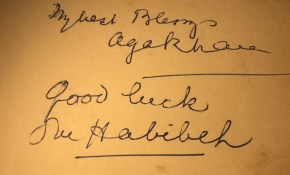 My best Blessings
Aga Khan
Good luck
Habibeh